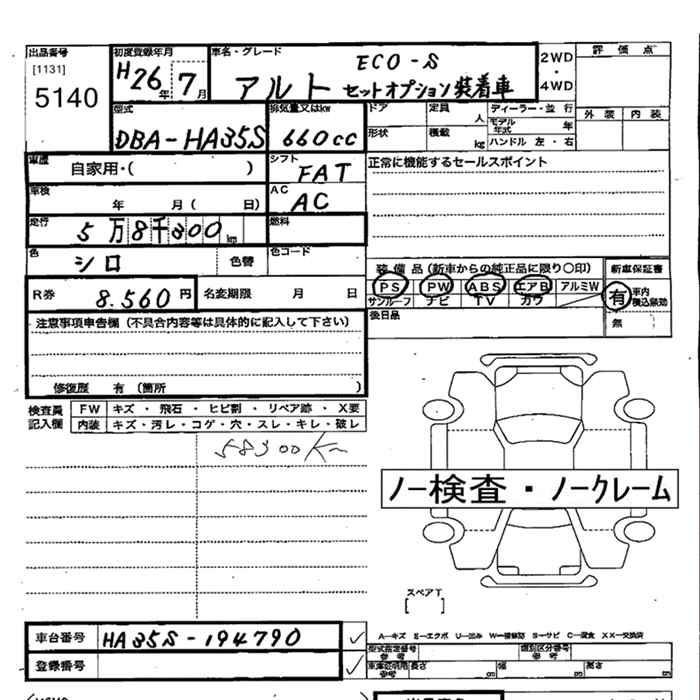 出品番号 初度登録年月 車名・グレード 評価点
[1131] H26年 7月 ECO-S 2WD
5140 アルト セットオプション装着車 ・4WD
型式 排気量又はkw ドア 定員 人 ディーラー・並行 外装 内装
モデル年式 年
DBA-HA35S 660cc 形状 積載 kg ハンドル 左・右
車歴 自家用・( ) シフト FAT 正常に機能するセールスポイント
車検 年 月( 日) AC AC
走行 5万8千300km 燃料
色 シロ 色替 色コード
装備品(新車からの純正品に限り○印) 新車保証書
R券 8.560円 名変期限 月 日 PS PW ABS エアB アルミW 有 車内 積込無効
サンルーフ ナビ TV カワ
注意事項申告欄(不具合内容等は具体的に記入して下さい) 後日品 無
修復歴 有(箇所 )
検査員記入欄 FW キズ・飛石・ヒビ割・リペア跡・X要
内装 キズ・汚レ・コゲ・穴・スレ・キレ・破レ
58300Km
ノー検査・ノークレーム
スペアT
[ ]
車台番号 HA35S-194790 ✓ A―キズ E―エクボ U―凹み W―補修跡 S―サビ C―腐食 XX―交換済
型式指定番号 参考 類別区分番号 参考
登録番号 ✓ 車庫証明用 参考 長さ cm 幅 cm 高さ cm